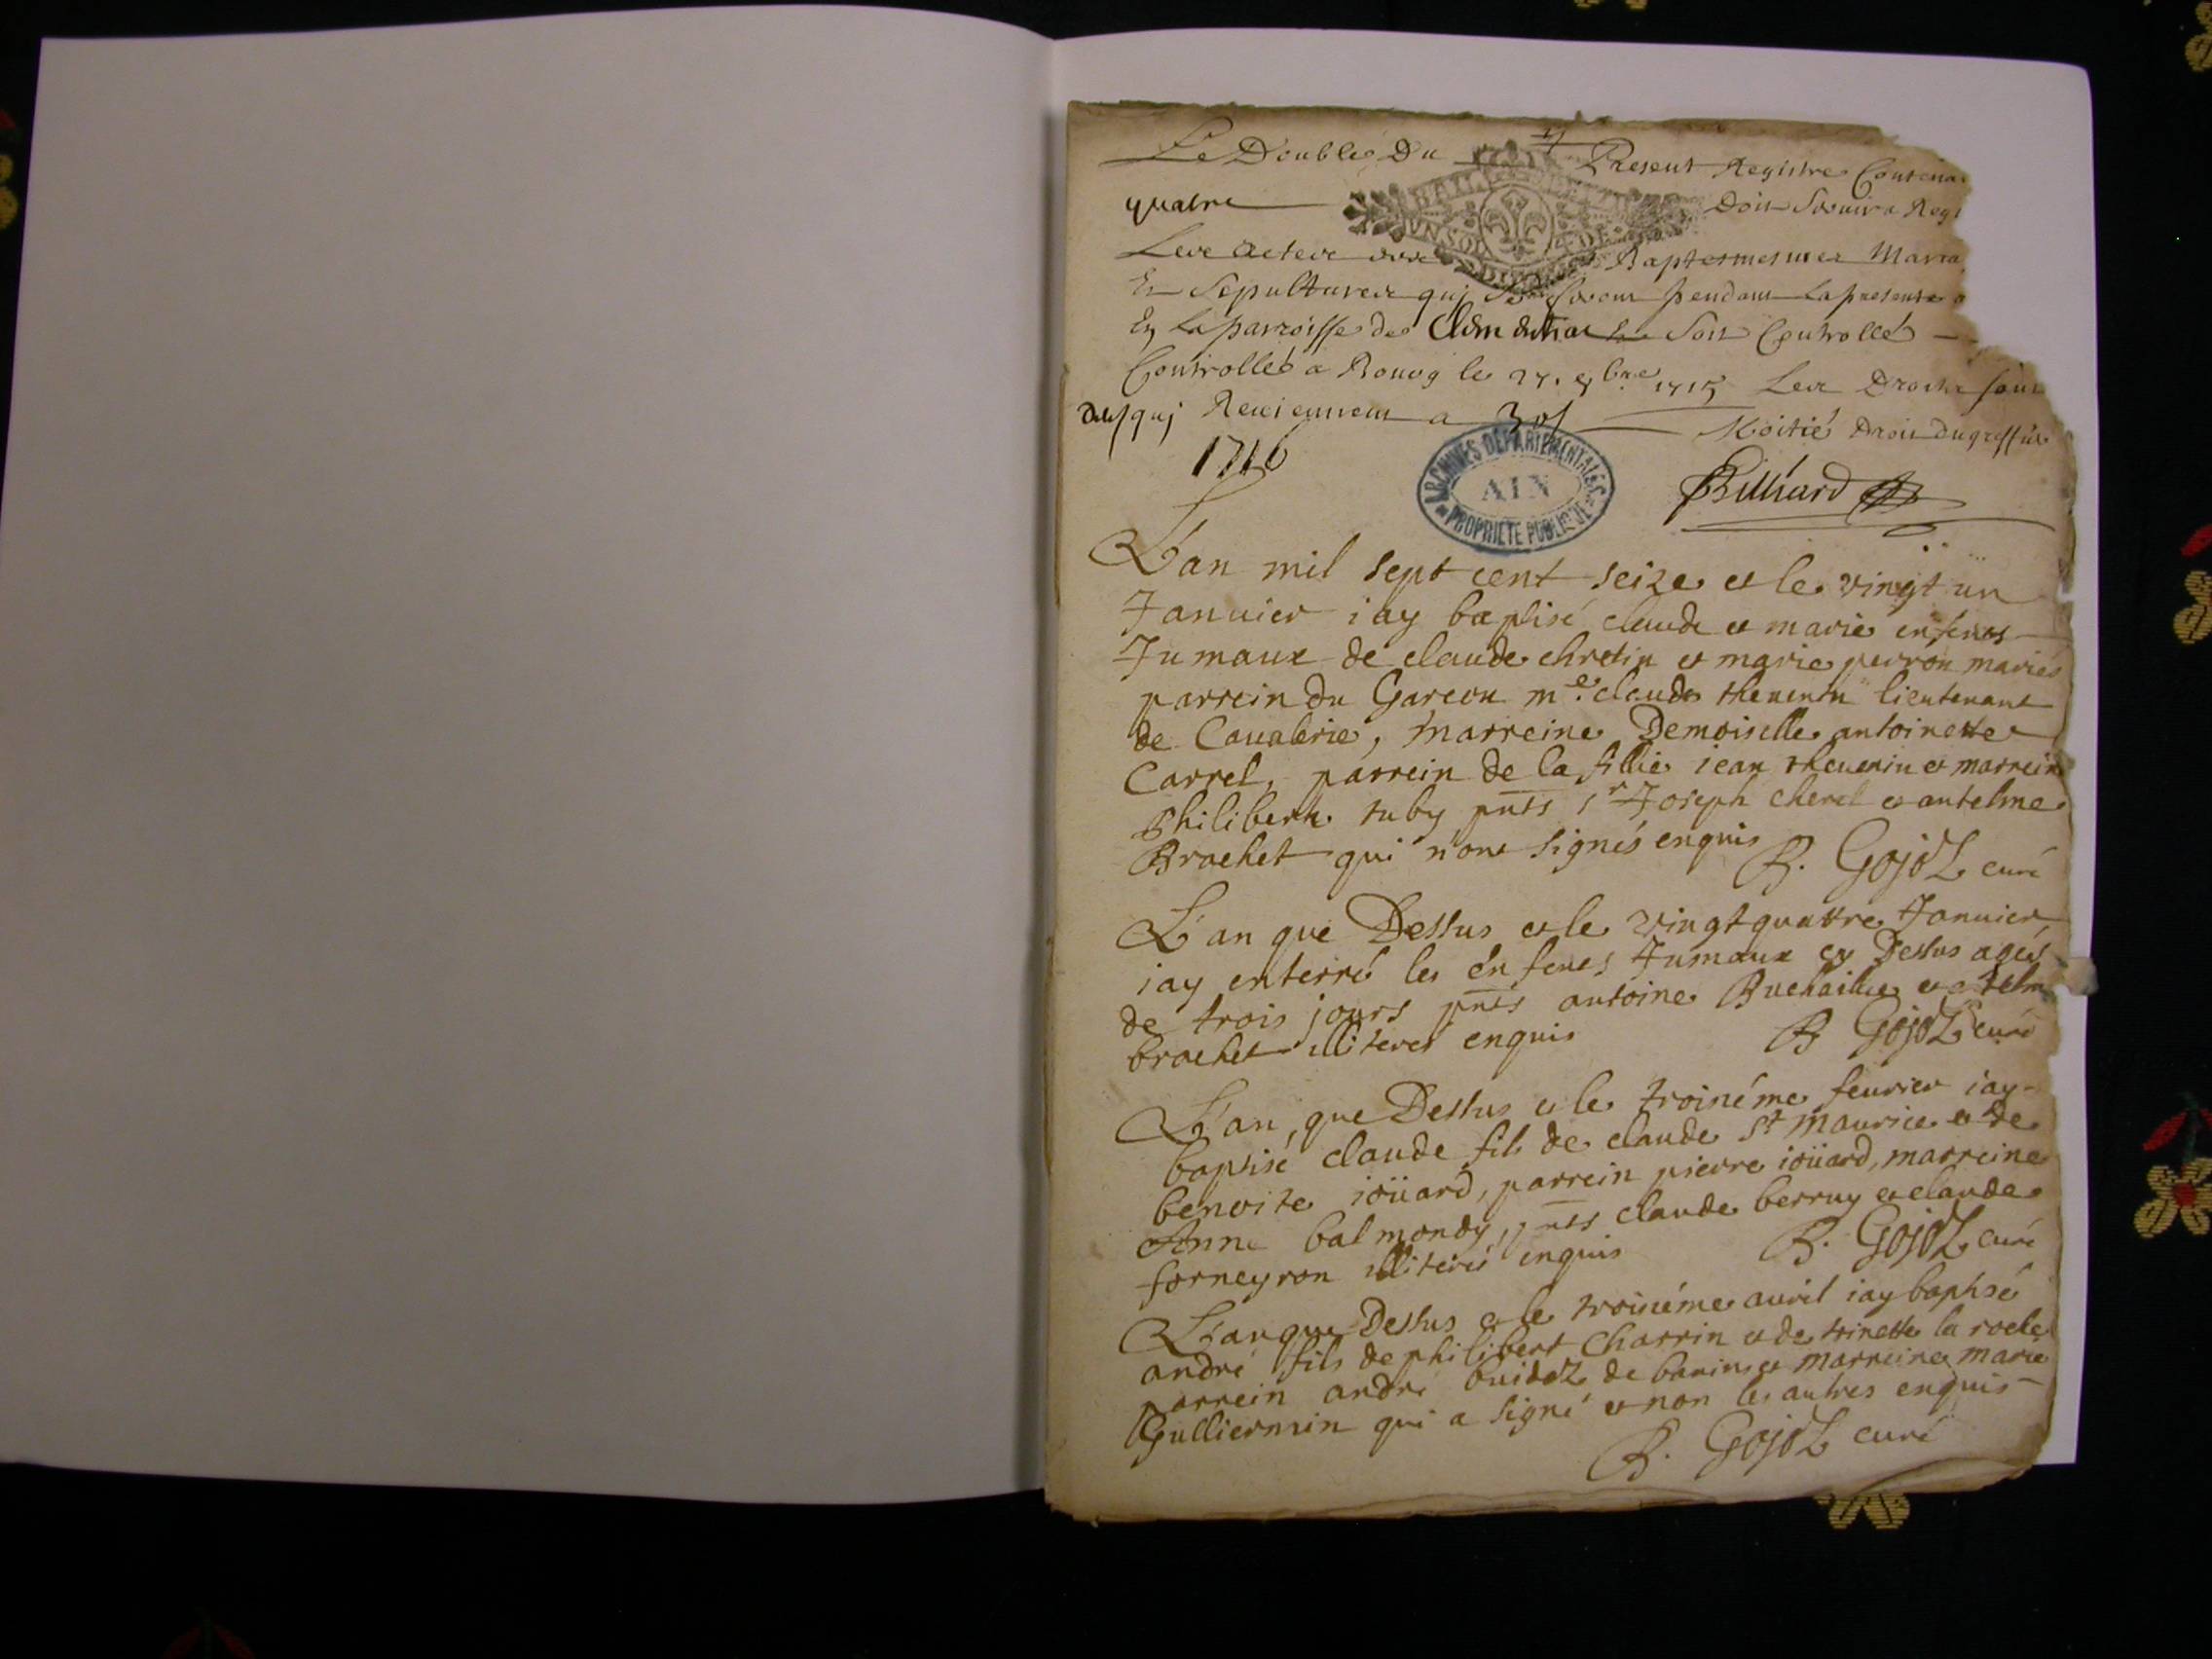 Le Double Du Present Registre Contena
quatre Doit Servir a Regi
Les actes des Baptesmes mes Maria
Et Sepultures quj Se feront pendant La presente a
En La parroisse de Et Sera Controllé
Controllé a Bourg le 27. 1715 Les Droits sont
quj Reuiennent a Moitié Droit du greffier
1716
Billiard
BAIL
UN SOL 4 DE
ARCHIVES DEPARTEMENTALES
AIN
PROPRIETE PUBLIQUE
L'an mil sept cent seize et le vingt un
Januier i'ay baptisé claude et marie enfens
Jumaux de claude chretin et marie perron mariés
parrein du Garcon me. claude theuenin lieutenant
de Caualerie, marreine Demoiselle antoinette
Carrel, parrein de la fillie iean theuenin et marrein
philiberte tuby pnts sr Joseph cherel et antelme
Brachet qui n'ont signés enquis B. Gojoz curé
L'an que Dessus et le vingt quattre Januier
i'ay enterré les enfens Jumaux cy Dessus agés
de trois jours pnts antoine Buchaillie et telm
brachet illiterés enquis B Gojoz curé
L'an, que Dessus et le troiziéme feurier i'ay
baptisé claude fils de claude St maurice et de
benoite ioüard, parrein pierre ioüard, marreine
Anne balmondy, pnts claude berruy et claude
forneyron illiterés enquis B. Gojoz curé
L'an que Dessus et le troiziéme auril i'ay baptisé
andré fils de philibert Charrin et de trinette la roche
parrein andré buidoz de baninge marreine marie
Gulliermin qui a signé et non les autres enquis
B. Gojoz curé